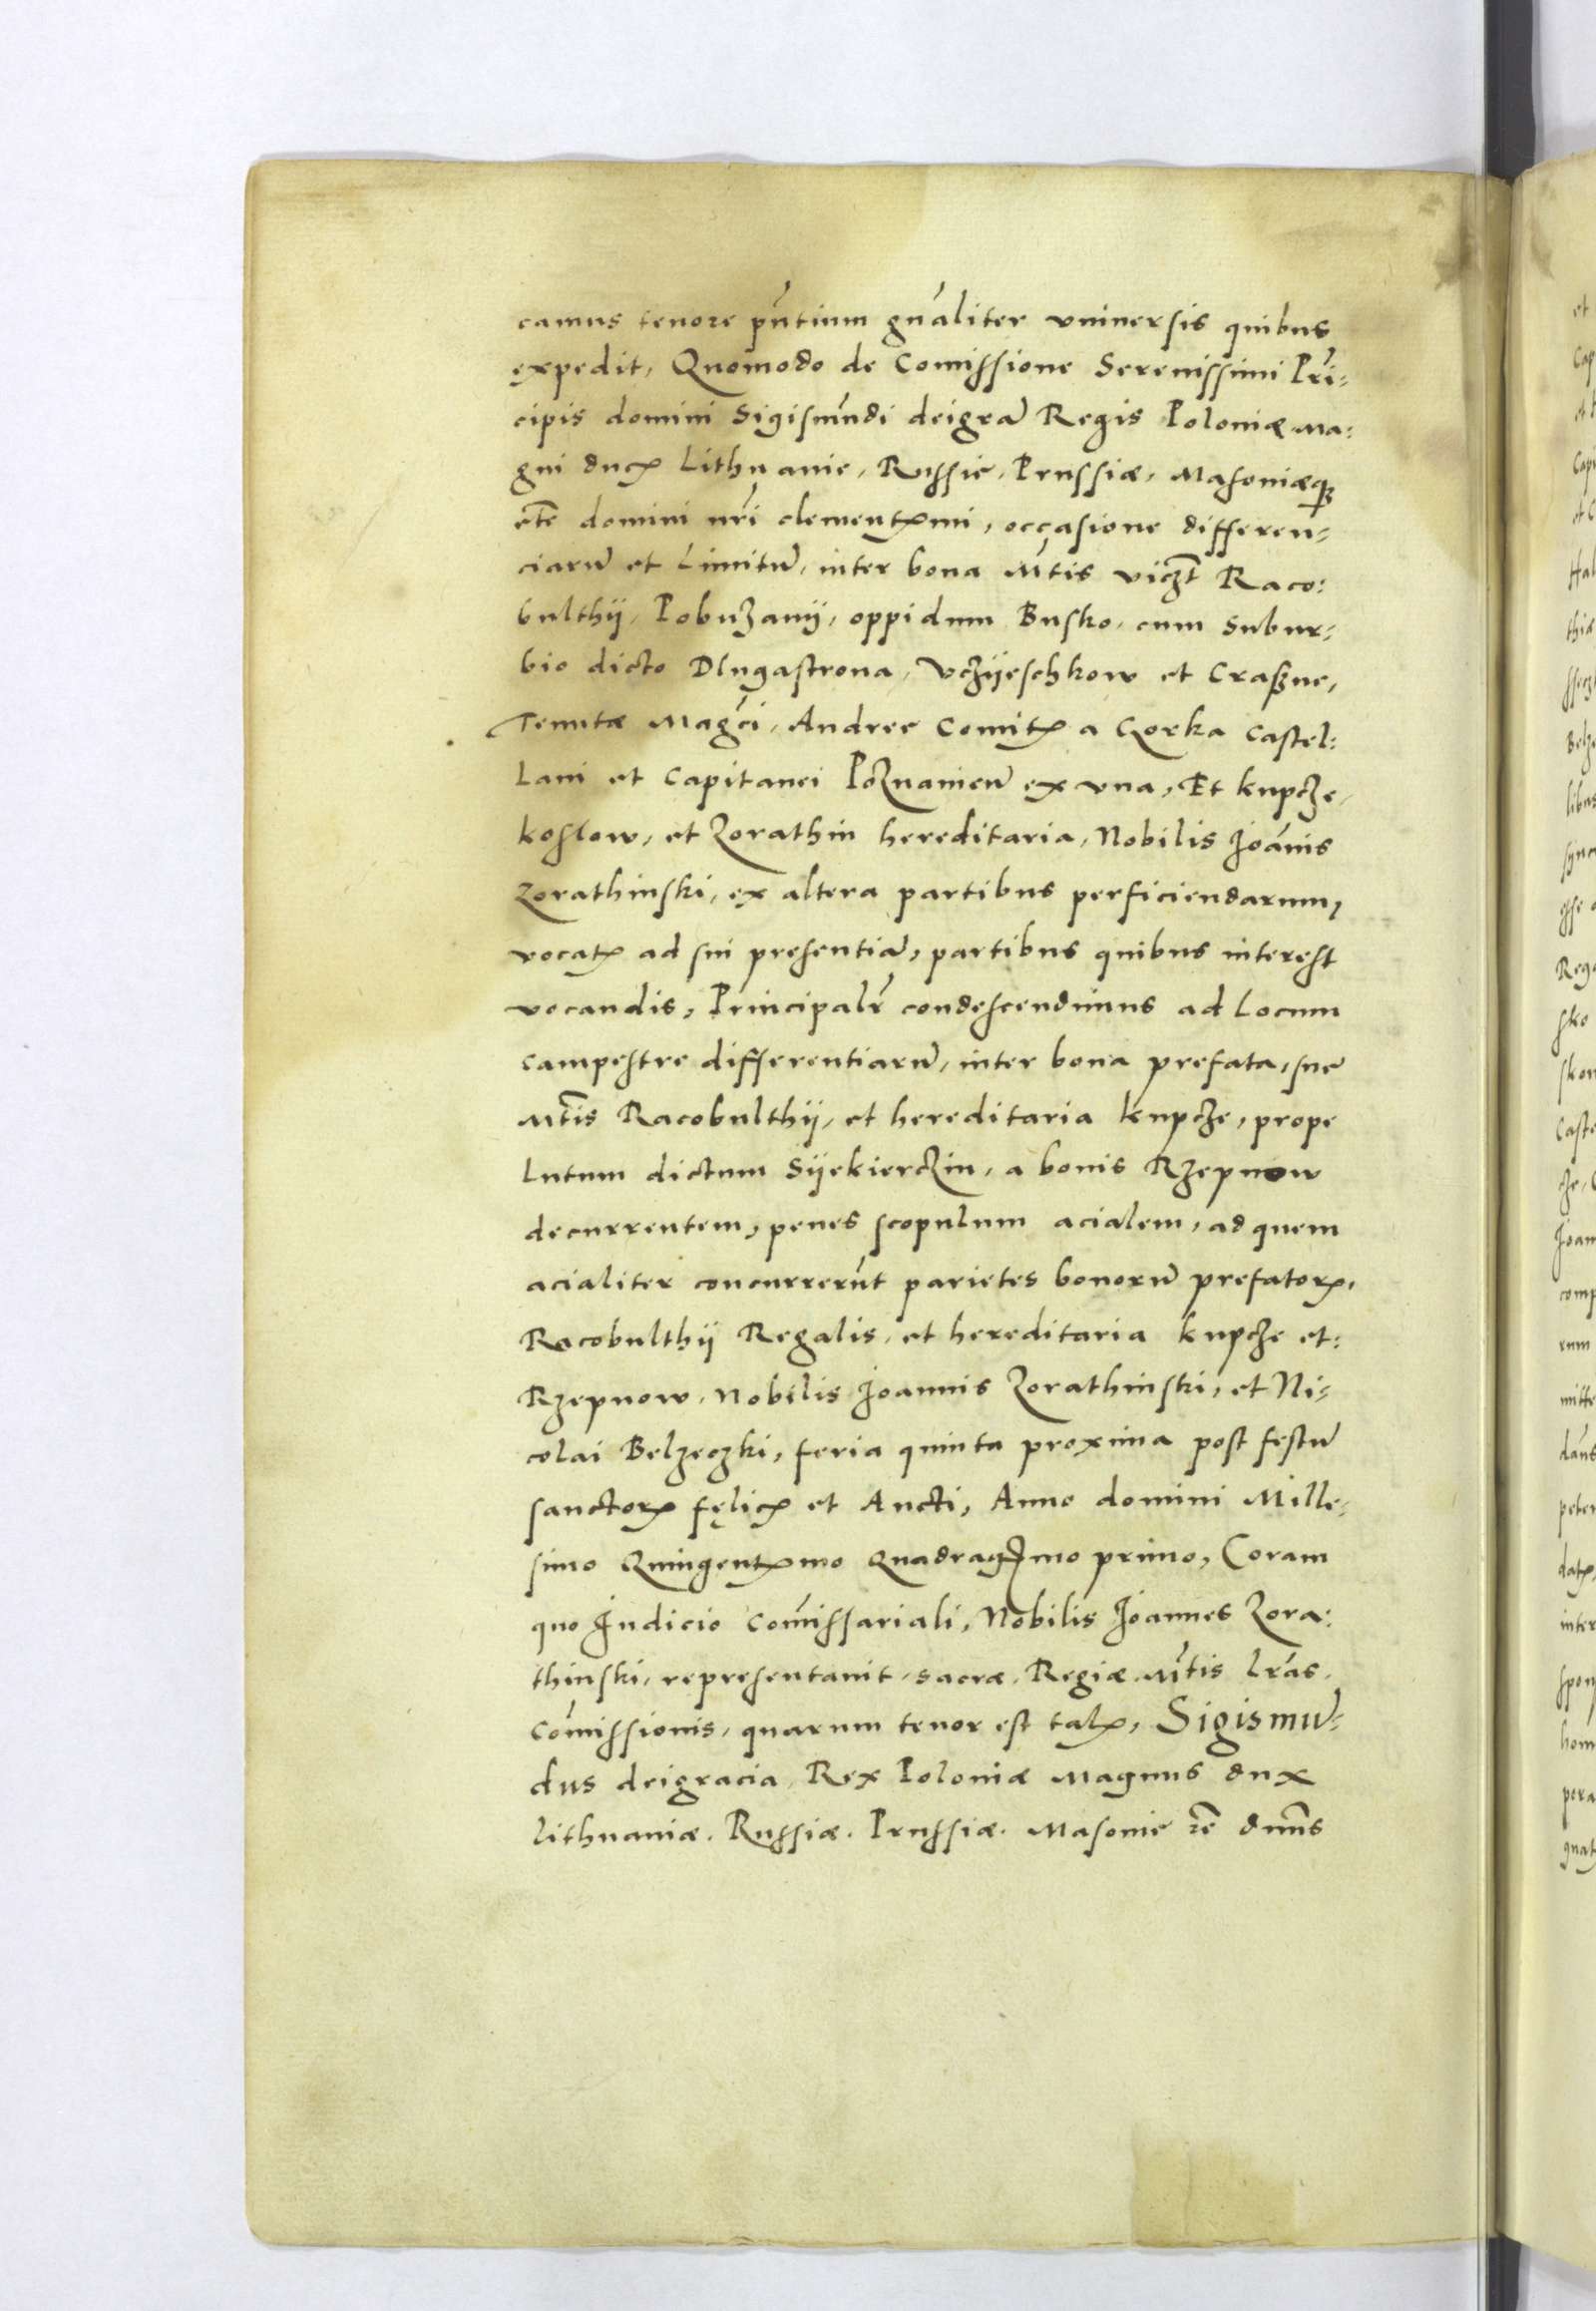 camus tenore pñtium gñaliter vniuersis quibus
expedit, Quomodo de Comissione Serenissimi Pri-
cipis domini Sigismũdi deigra Regis Poloniæ Ma:
gni ducꝭ Lithuanie, Russie, Prussiæ, Masoniæqꝫ
etc̃ domini nr̃i clementꝭmi, occasione differen-
ciarũ et Limitũ, inter bona Mt̃is viczt̃ Raco:
bulthij, Pobuzanij, oppidum Busko, cum Subur-
bio dicto Dlugastrona, Vczijeschkow et Craszne,
Tenutæ Magc̃i, Andree Comitꝭ a Gorka Castel:
lani et Capitanei Poznanieñ ex vna, Et Kupcze,
Koslow, et Zorathin hereditaria, Nobilis Joãnis
Zorathinski, ex altera partibus perficiendarum,
vocatꝭ ad sui presentiã, partibus quibus interest
vocandis, Principalr̃ condescendimus ad Locum
campestre differentiarũ, inter bona prefata, sue
Mt̃is Racobulthij, et hereditaria Kupcze, prope
Lutum dictum Sijekierczin, a bonis Rzepnow
decurrentem, penes scopulum acialem, ad quem
acialiter concurrerũt parietes bonorũ prefatorꝭ,
Racobulthij Regalis, et hereditaria Kupcze et:
Rzepnow, Nobilis Joannis Zorathinski, et Ni-
colai Belzeczki, feria quinta proxima post festũ
sanctorꝭ fęlicꝭ et Aucti, Anno domini Mille-
simo Quingentꝭmo Quadragꝭmo primo, Coram
quo Judicio Com̃issariali, Nobilis Joannes Zora:
thinski, representauit, Sacræ, Regiæ Mt̃is lr̃as,
Com̃issionis, quarum tenor est talꝭ, Sigismũ-
dus deigracia, Rex Poloniæ Magnus dux
lithuaniæ, Russiæ, Prussiæ, Masonie ꝛc̃ dnũs